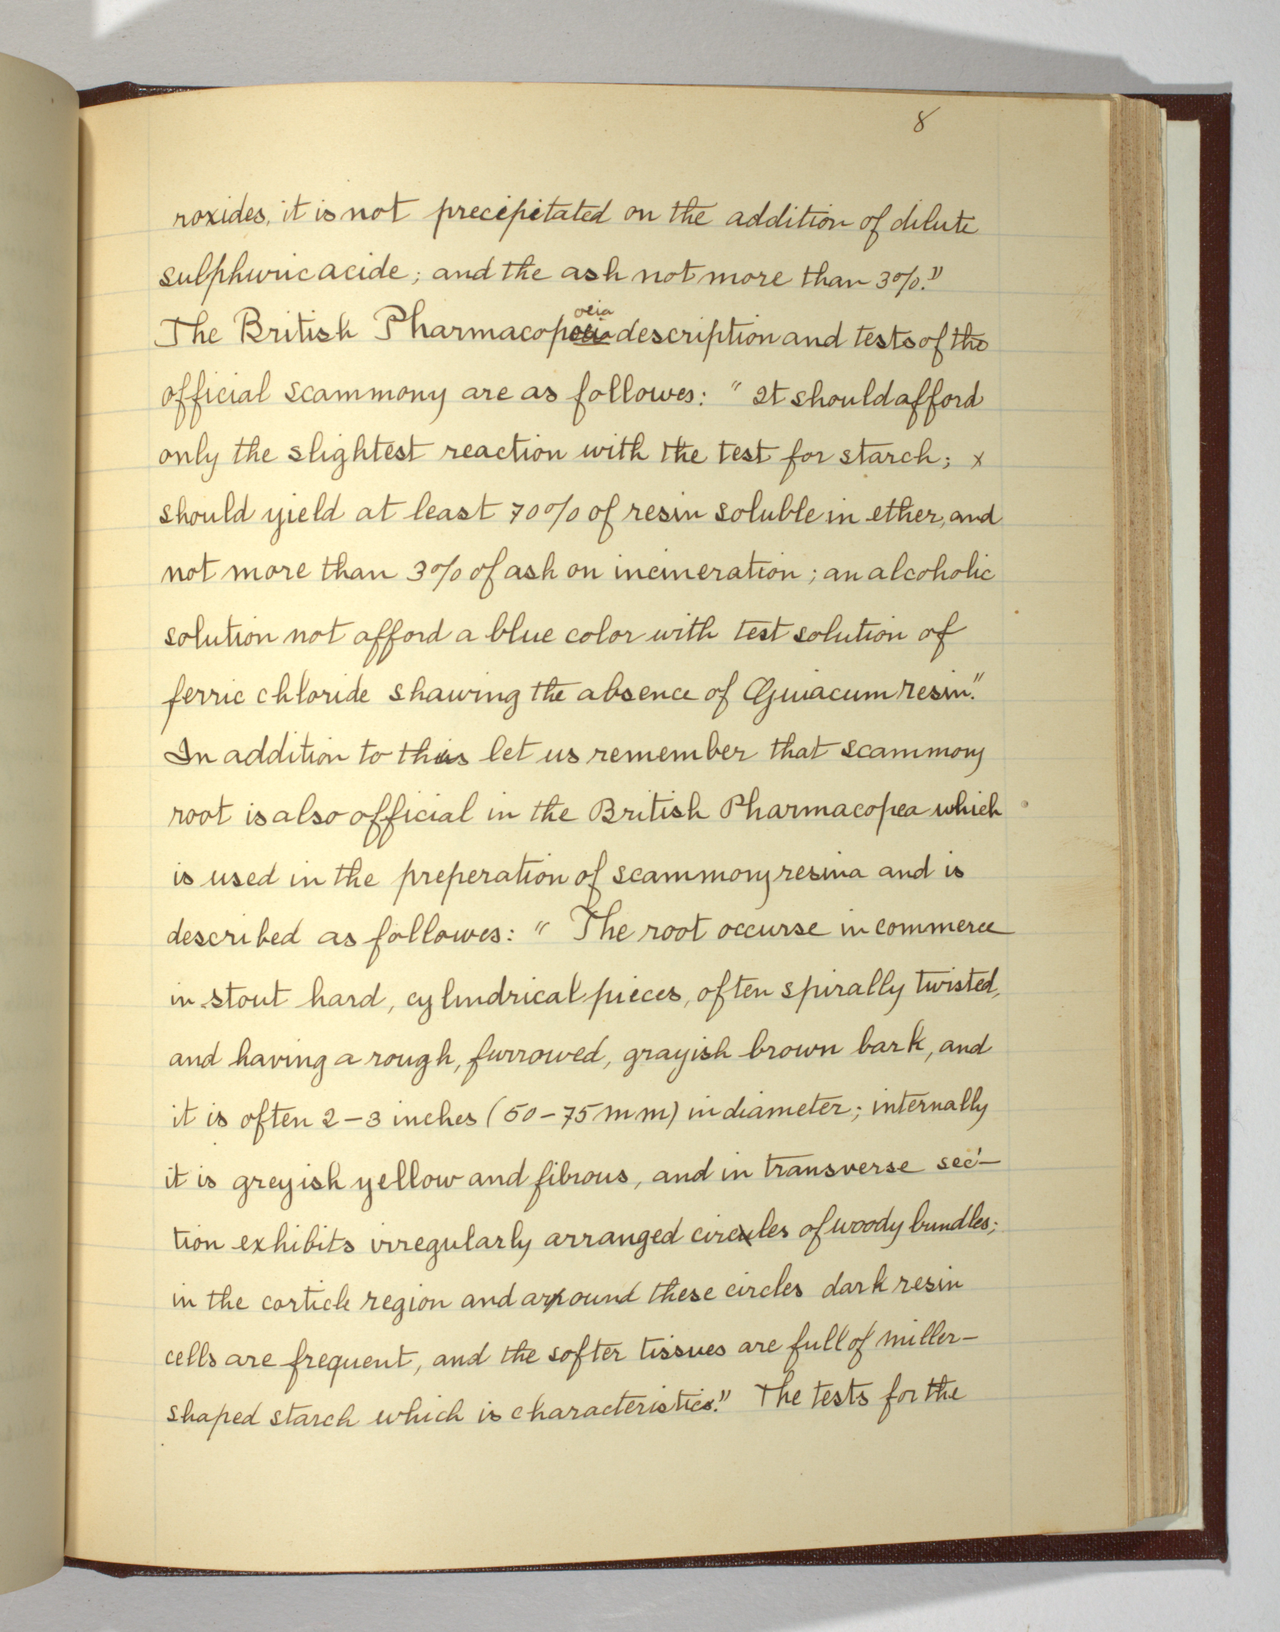 8
roxides, it is not precipitated on the addition of dilute
sulphuric acide; and the ash not more than 3%."
The British Pharmacopoeia description and tests of the
official scammony are as followes: "It should afford
only the slightest reaction with the test for starch; x
should yield at least 70% of resin soluble in ether, and
not more than 3% of ash on incineration; an alcoholic
solution not afford a blue color with test solution of
ferric chloride shawing the absence of Guiacum resin."
In addition to this let us remember that scammony
root is also official in the British Pharmacopea which
is used in the preperation of scammony resina and is
described as followes: "The root occurse in commerce
in stout hard, cylindrical pieces, often spirally twisted,
and having a rough, furrowed, grayish brown bark, and
it is often 2-3 inches (50-75 mm) in diameter; internally
it is greyish yellow and fibrous, and in transverse sec-
tion exhibits irregularly arranged circles of woody bundles;
in the corticle region and around these circles dark resin
cells are frequent, and the softer tissues are full of miller-
shaped starch which is characteristic." The tests for the